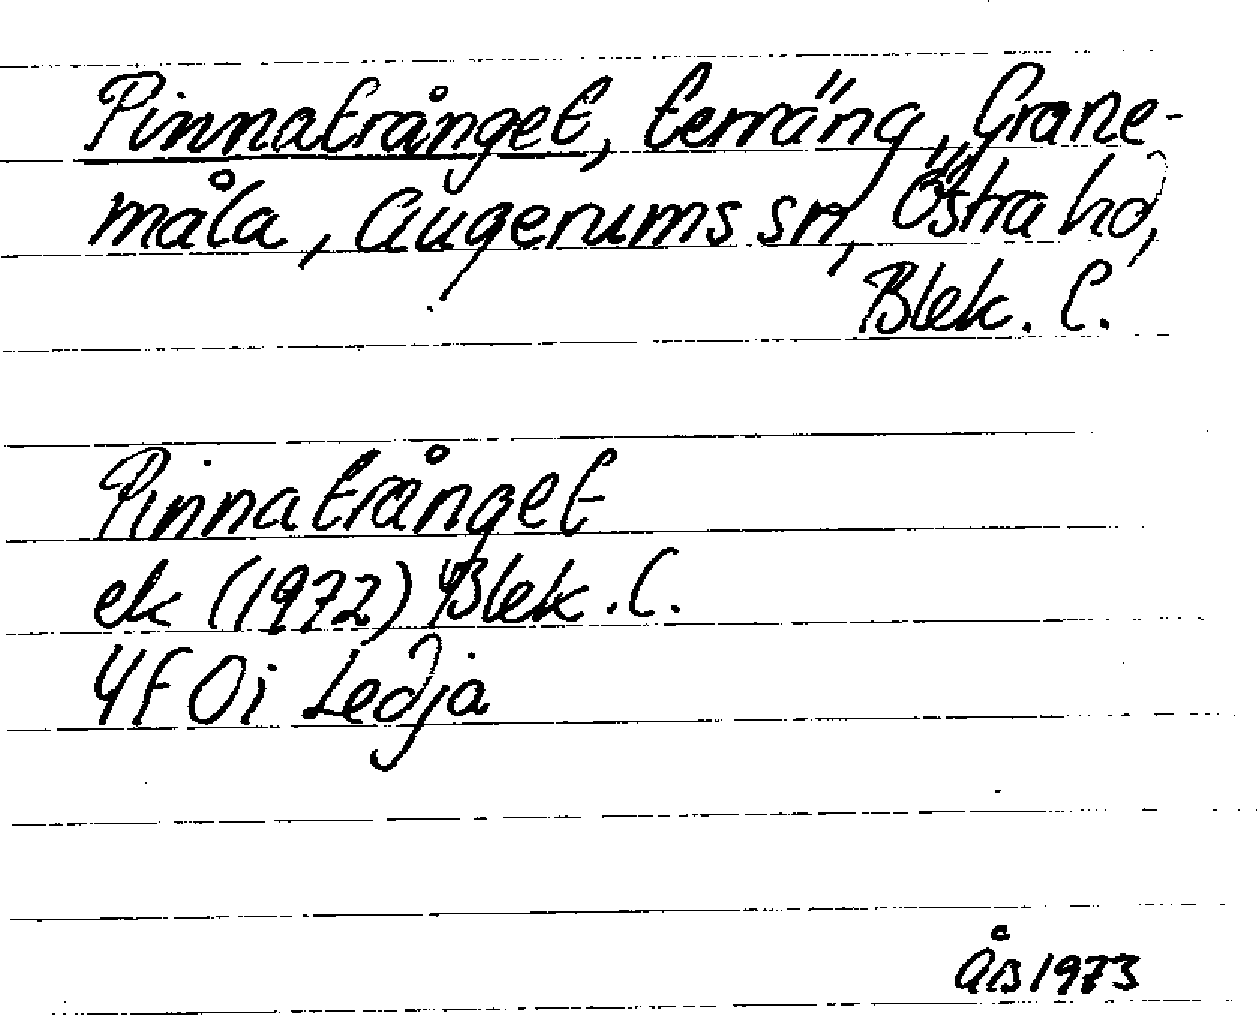 Pinnatrånget, terräng, Grane-
måla, Augerums sn, Östra hd,
Blek. l.
Pinnatrånget
ek (1972) Blek. l.
4F 0i Ledja
ÅB 1973